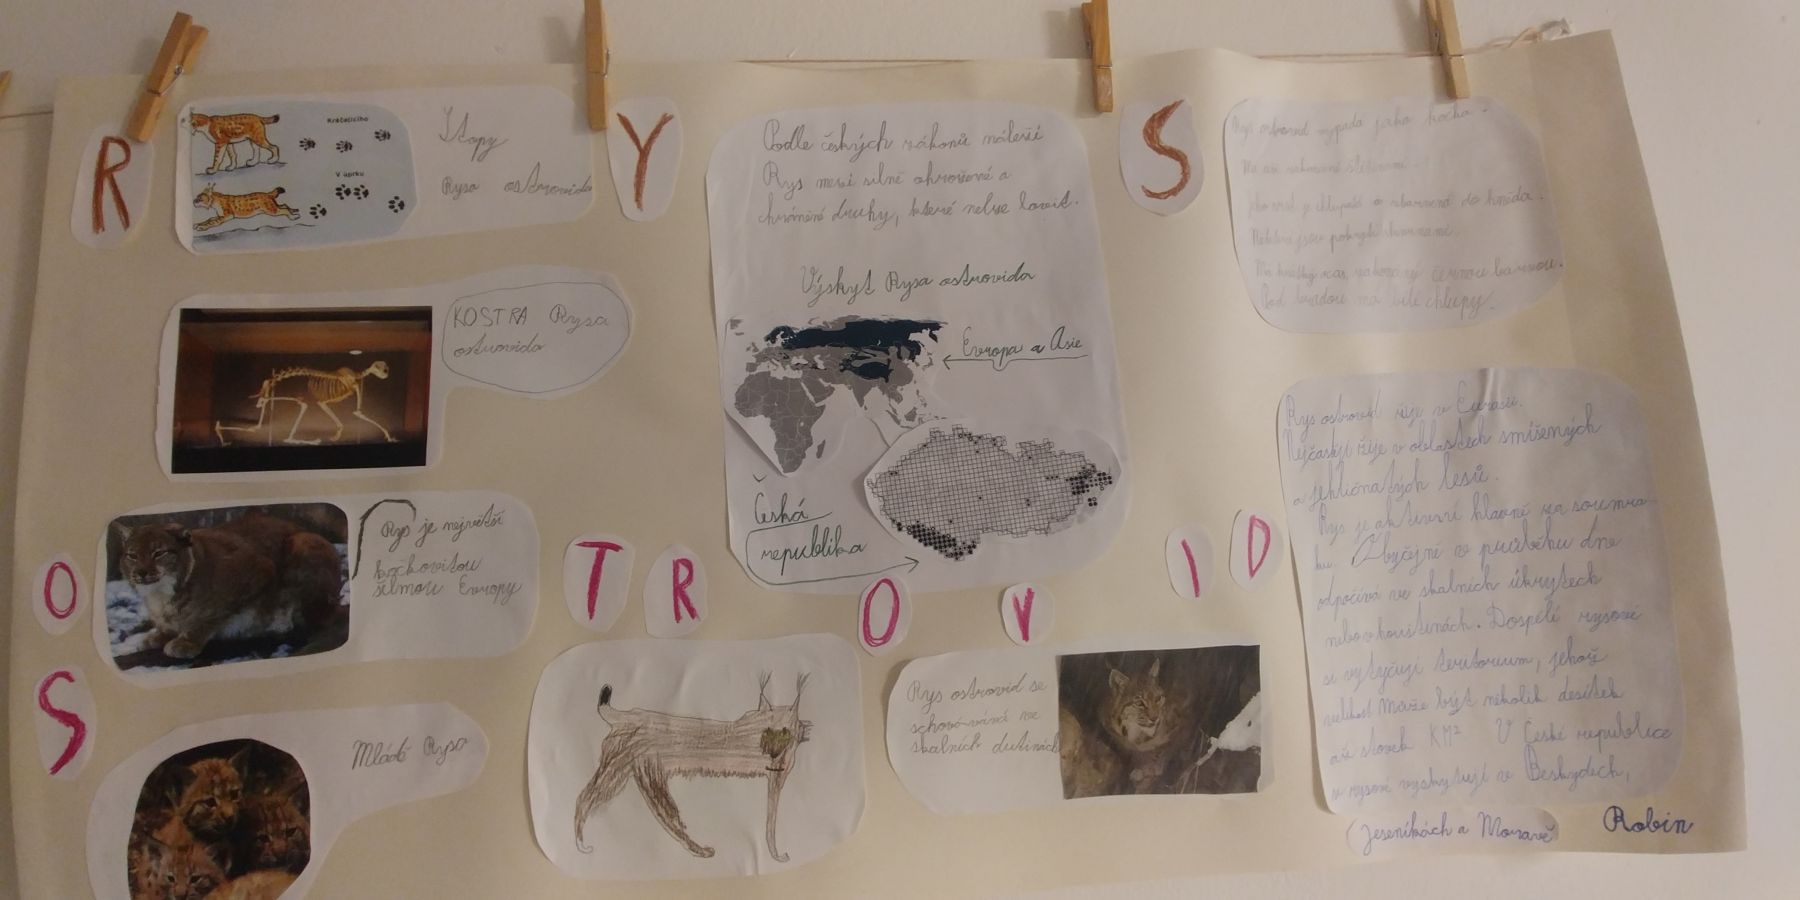 RYS
OSTROVID
Kráčejícího
V úprku
Stopy
Rysa ostrovida
KOSTRA Rysa
ostrovida
Rys je největší
kočkovitou
šelmou Evropy
Mládě Rysa
Podle českých zákonů náleží
Rys mezi silně ohrožené a
chráněné druhy, které nelze lovit.
Výskyt Rysa ostrovida
Evropa a Asie
Česká
republika
Rys ostrovid se
schovává ve
skalních dutinách
Rys ostrovid vypadá jako kočka
Má
jeho srst je chlupatá a zbarvená do hněda.
Některé jsou pokryté skvrnami.
Má krátký ocas, zakončený černou barvou.
Pod bradou má bílé chlupy.
Rys ostrovid žije v Eurasii.
Nejčastěji žije v oblastech smíšených
a jehličnatých lesů.
Rys je aktivní hlavně za soumra-
ku. Obyčejně v průběhu dne
odpočívá ve skalních úkrytech
nebo v houštinách. Dospělí rysové
si vytyčují teritorium, jehož
velikost může být několik desítek
až stovek KM²   V České republice
rysové vyskytují v Beskydech,
Jeseníkách a Moravě
Robin